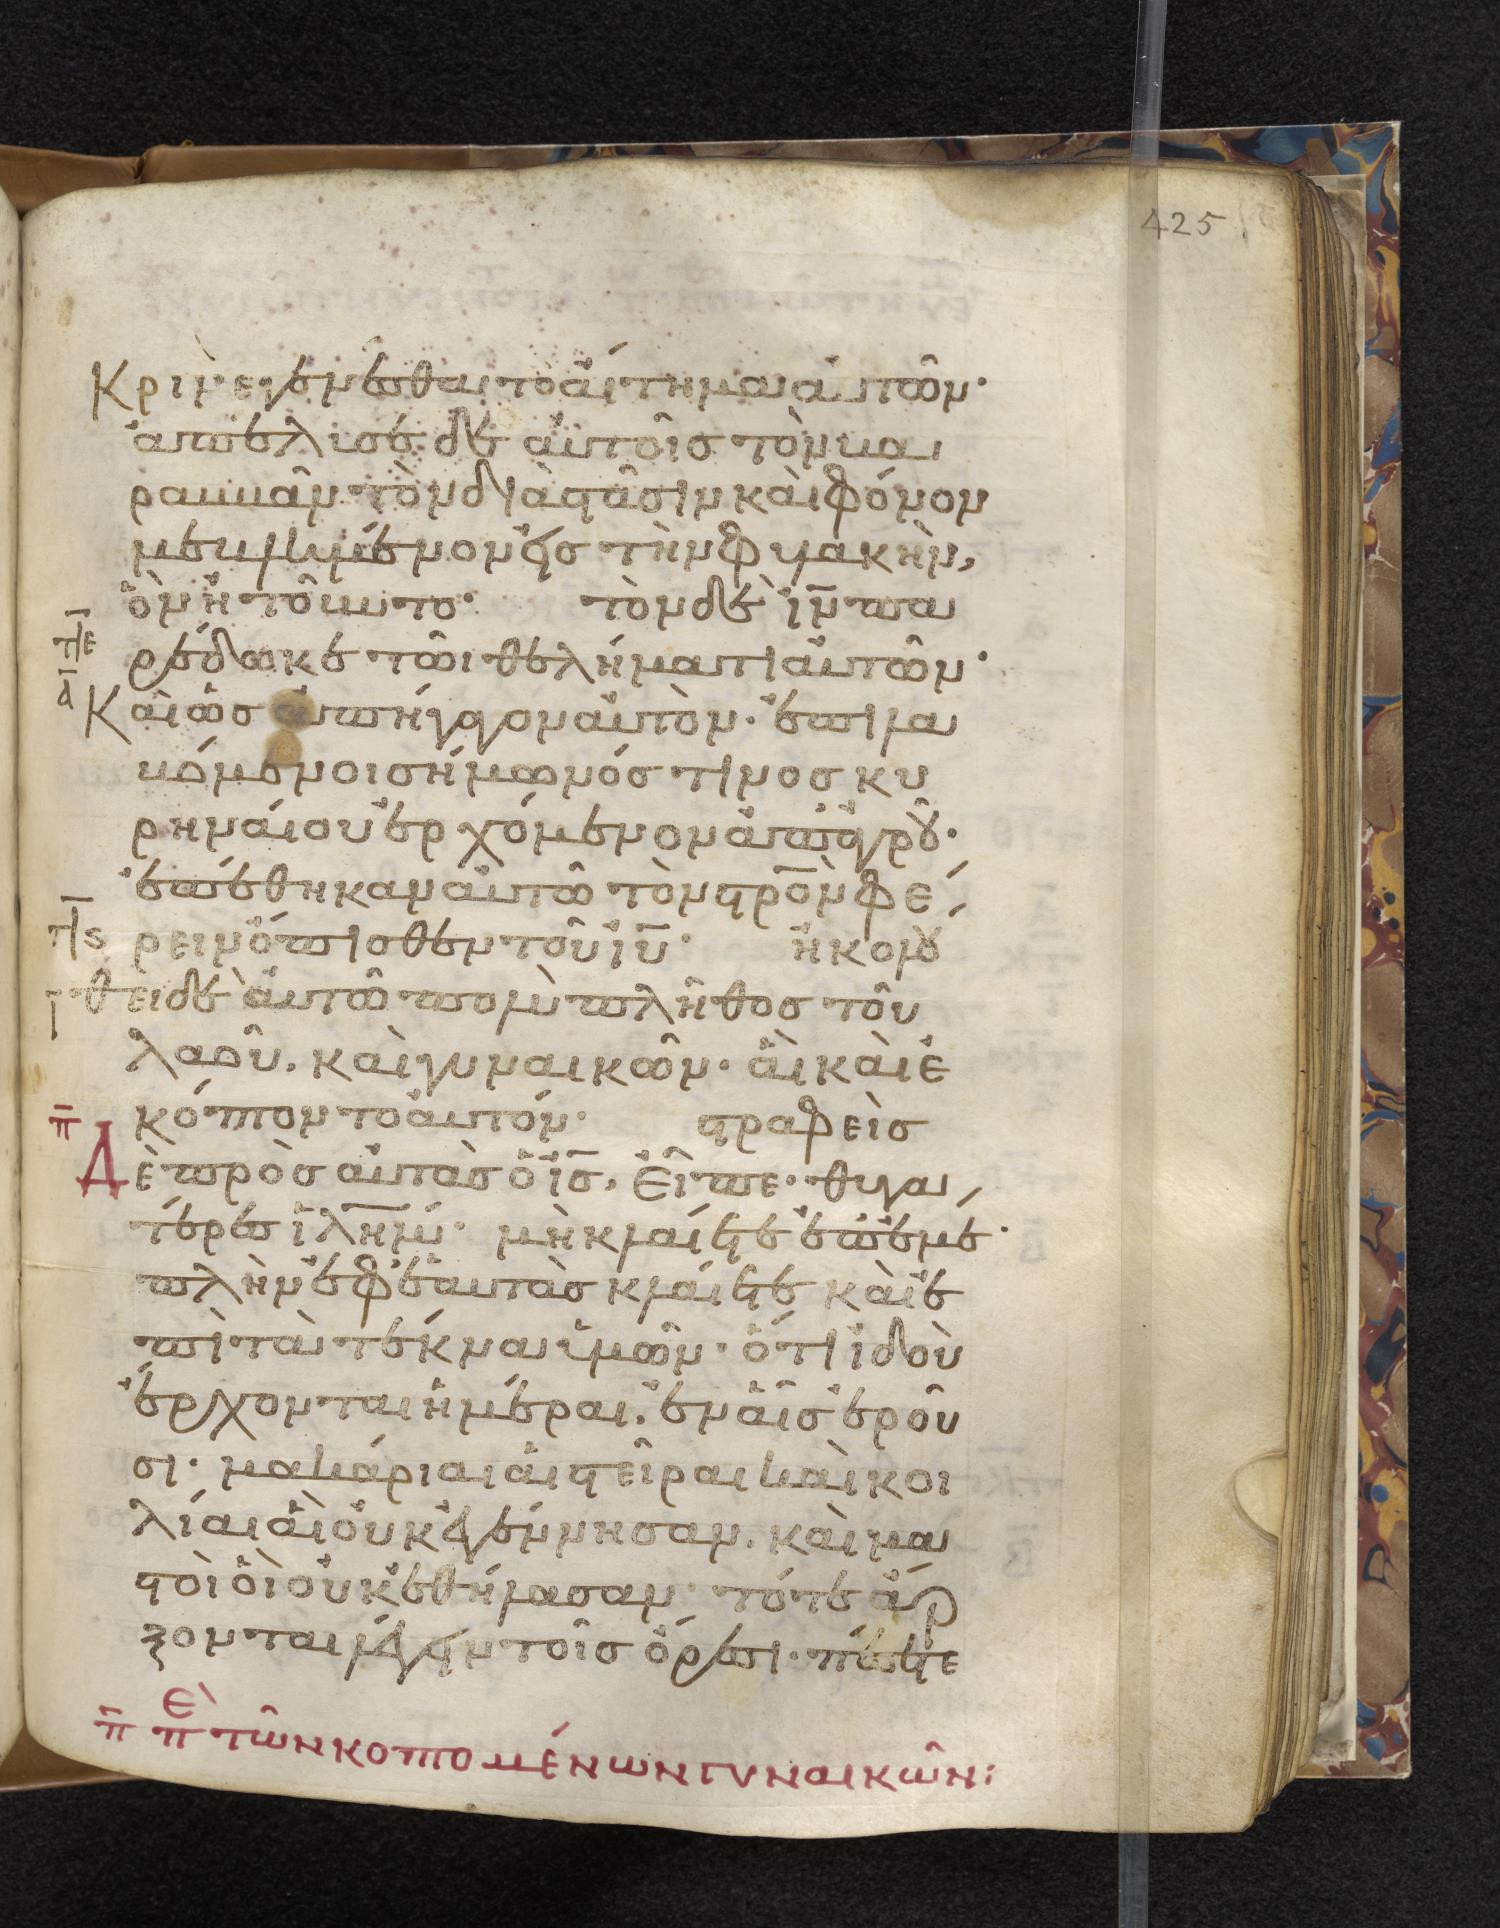 425
Κρινεν γενέσθαι το αἴτημα αὐτῶν·
ἀπέλισε δὲ αὐτοῖς τὸν βα
ραββᾶν τὸν διὰ στάσιν καὶ φόνον
βεβλημένον εἰς τὴν φυλακὴν,
ὃν ἠτοῦντο· τὸν δὲ ἰ̅ν̅ πα
ρέδωκε τῶι θελήματι αὐτῶν·
π̅ε̅
α̅
Καὶ ὡς ἀπήγαγον αὐτὸν· ἐπιλα
βόμενοι σήμωνός τινος κυ
ρηναίου ἐρχόμενον ἀπ' ἀγροῦ·
ἐπέθηκαν αὐτῶ τὸν στρ̅ὸν φέ
ρειν ὄπισθεν τοῦ ἰ̅υ̅· ἠκολού
θει δὲ αὐτῶ πολὺ πλῆθος τοῦ
λαοῦ, καὶ γυναικῶν· αἳ καὶ ἐ
κόπτοντο αὐτόν· στραφεὶς
π̅
Δὲ πρὸς αὐτὰς ὁ ἰ̅ς̅, εἶπε· θυγα
τέρες ἰ̅λ̅η̅μ̅· μὴ κλαίετε ἐπ' ἐμέ·
πλὴν ἐφ' ἑαυτὰς κλαίετε καὶ ἐ
πὶ τὰ τέκνα ὑμῶν· ὅτι ἰδοὺ
ἔρχονται ἡμέραι, ἐν αἷς ἐροῦ
σι· μακάριαι αἱ στεῖραι καὶ κοι
λίαι αἳ οὐκ ἐγέννησαν, καὶ μα
στοὶ οἳ οὐκ ἐθήλασαν· τότε ἄρ
ξονται λέγειν τοῖς ὄρεσι· πέσετε
π̅ πὲ τῶν κοπτομένων γυναικῶν: